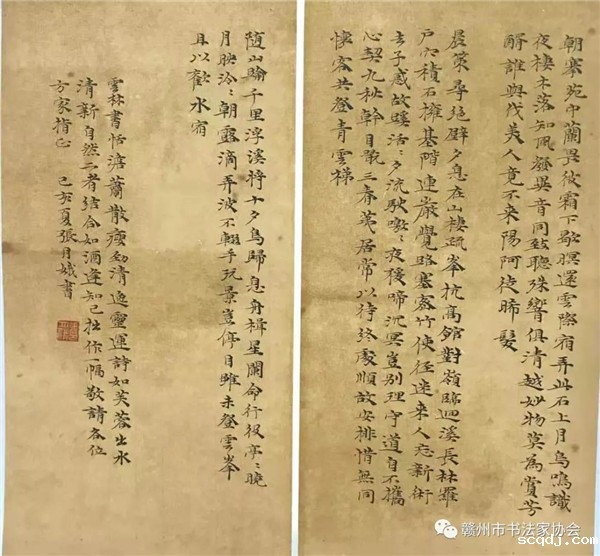 朝搴苑中蘭畏彼霜下歇暝還雲際宿弄此石上月鳥鳴識
夜棲木落知風發異音同致聽殊響俱清越妙物莫為賞芳
醑誰與伐美人竟不來陽阿徒晞髮
晨策尋絕壁夕息在山棲疏峯抗高館對嶺臨迴溪長林羅
戶穴積石擁基階連巖覺路塞密竹使徑迷來人忘新術
去子惑故蹊活〻夕流駛噭〻夜猨啼沉冥豈別理守道自不攜
心契九秋幹目翫三春荑居常以待終處順故安排惜無同
懷客共登青雲梯
隨山踰千里浮溪將十夕鳥歸息舟楫星闌命行役亭〻曉
月映泠〻朝露滴弄波不輟手玩景豈停目雖未登雲峯
且以歡水宿
雲林書恬澹蕭散瘦勁清逸靈運詩如芙蓉出水
清新自然二者結合如酒逢知己拙作一幅敬請各位
方家指正 己亥夏張月娥書
赣州市书法家协会
www.scqdj.com